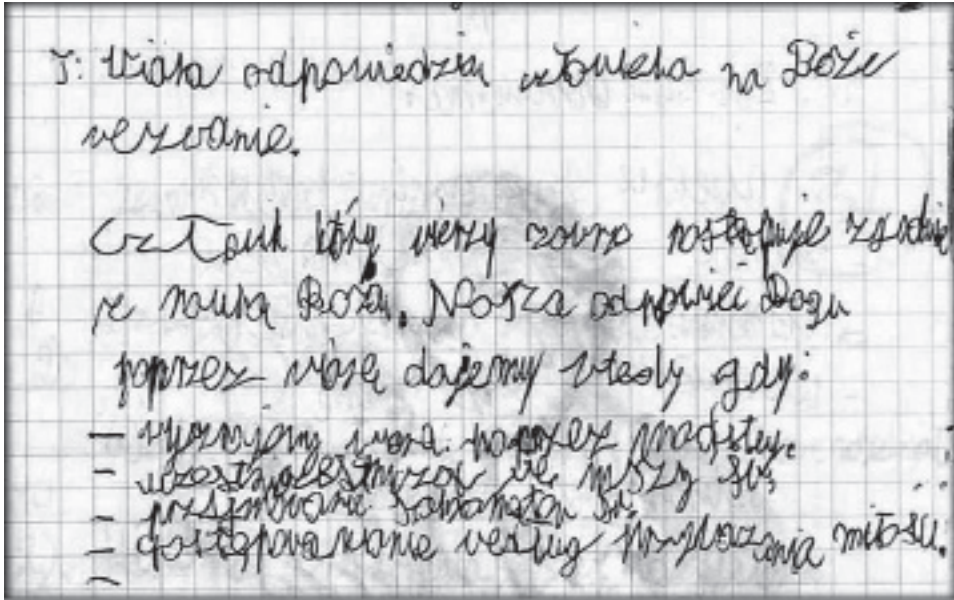 T: Wiara odpowiedzią człowieka na Boże
wezwanie.
Człowik który wierzy zawrze postępuje zgodnie
z nauką Bożą. Nasza odpowieć Bogu
poprzez wiarę dajemy wtedy gdy:
- wyznajemy wiarę poprzez
- we mszy św.
- przyjmowanie sakramentów św.
- postępowanie według przykazania miłości.
-